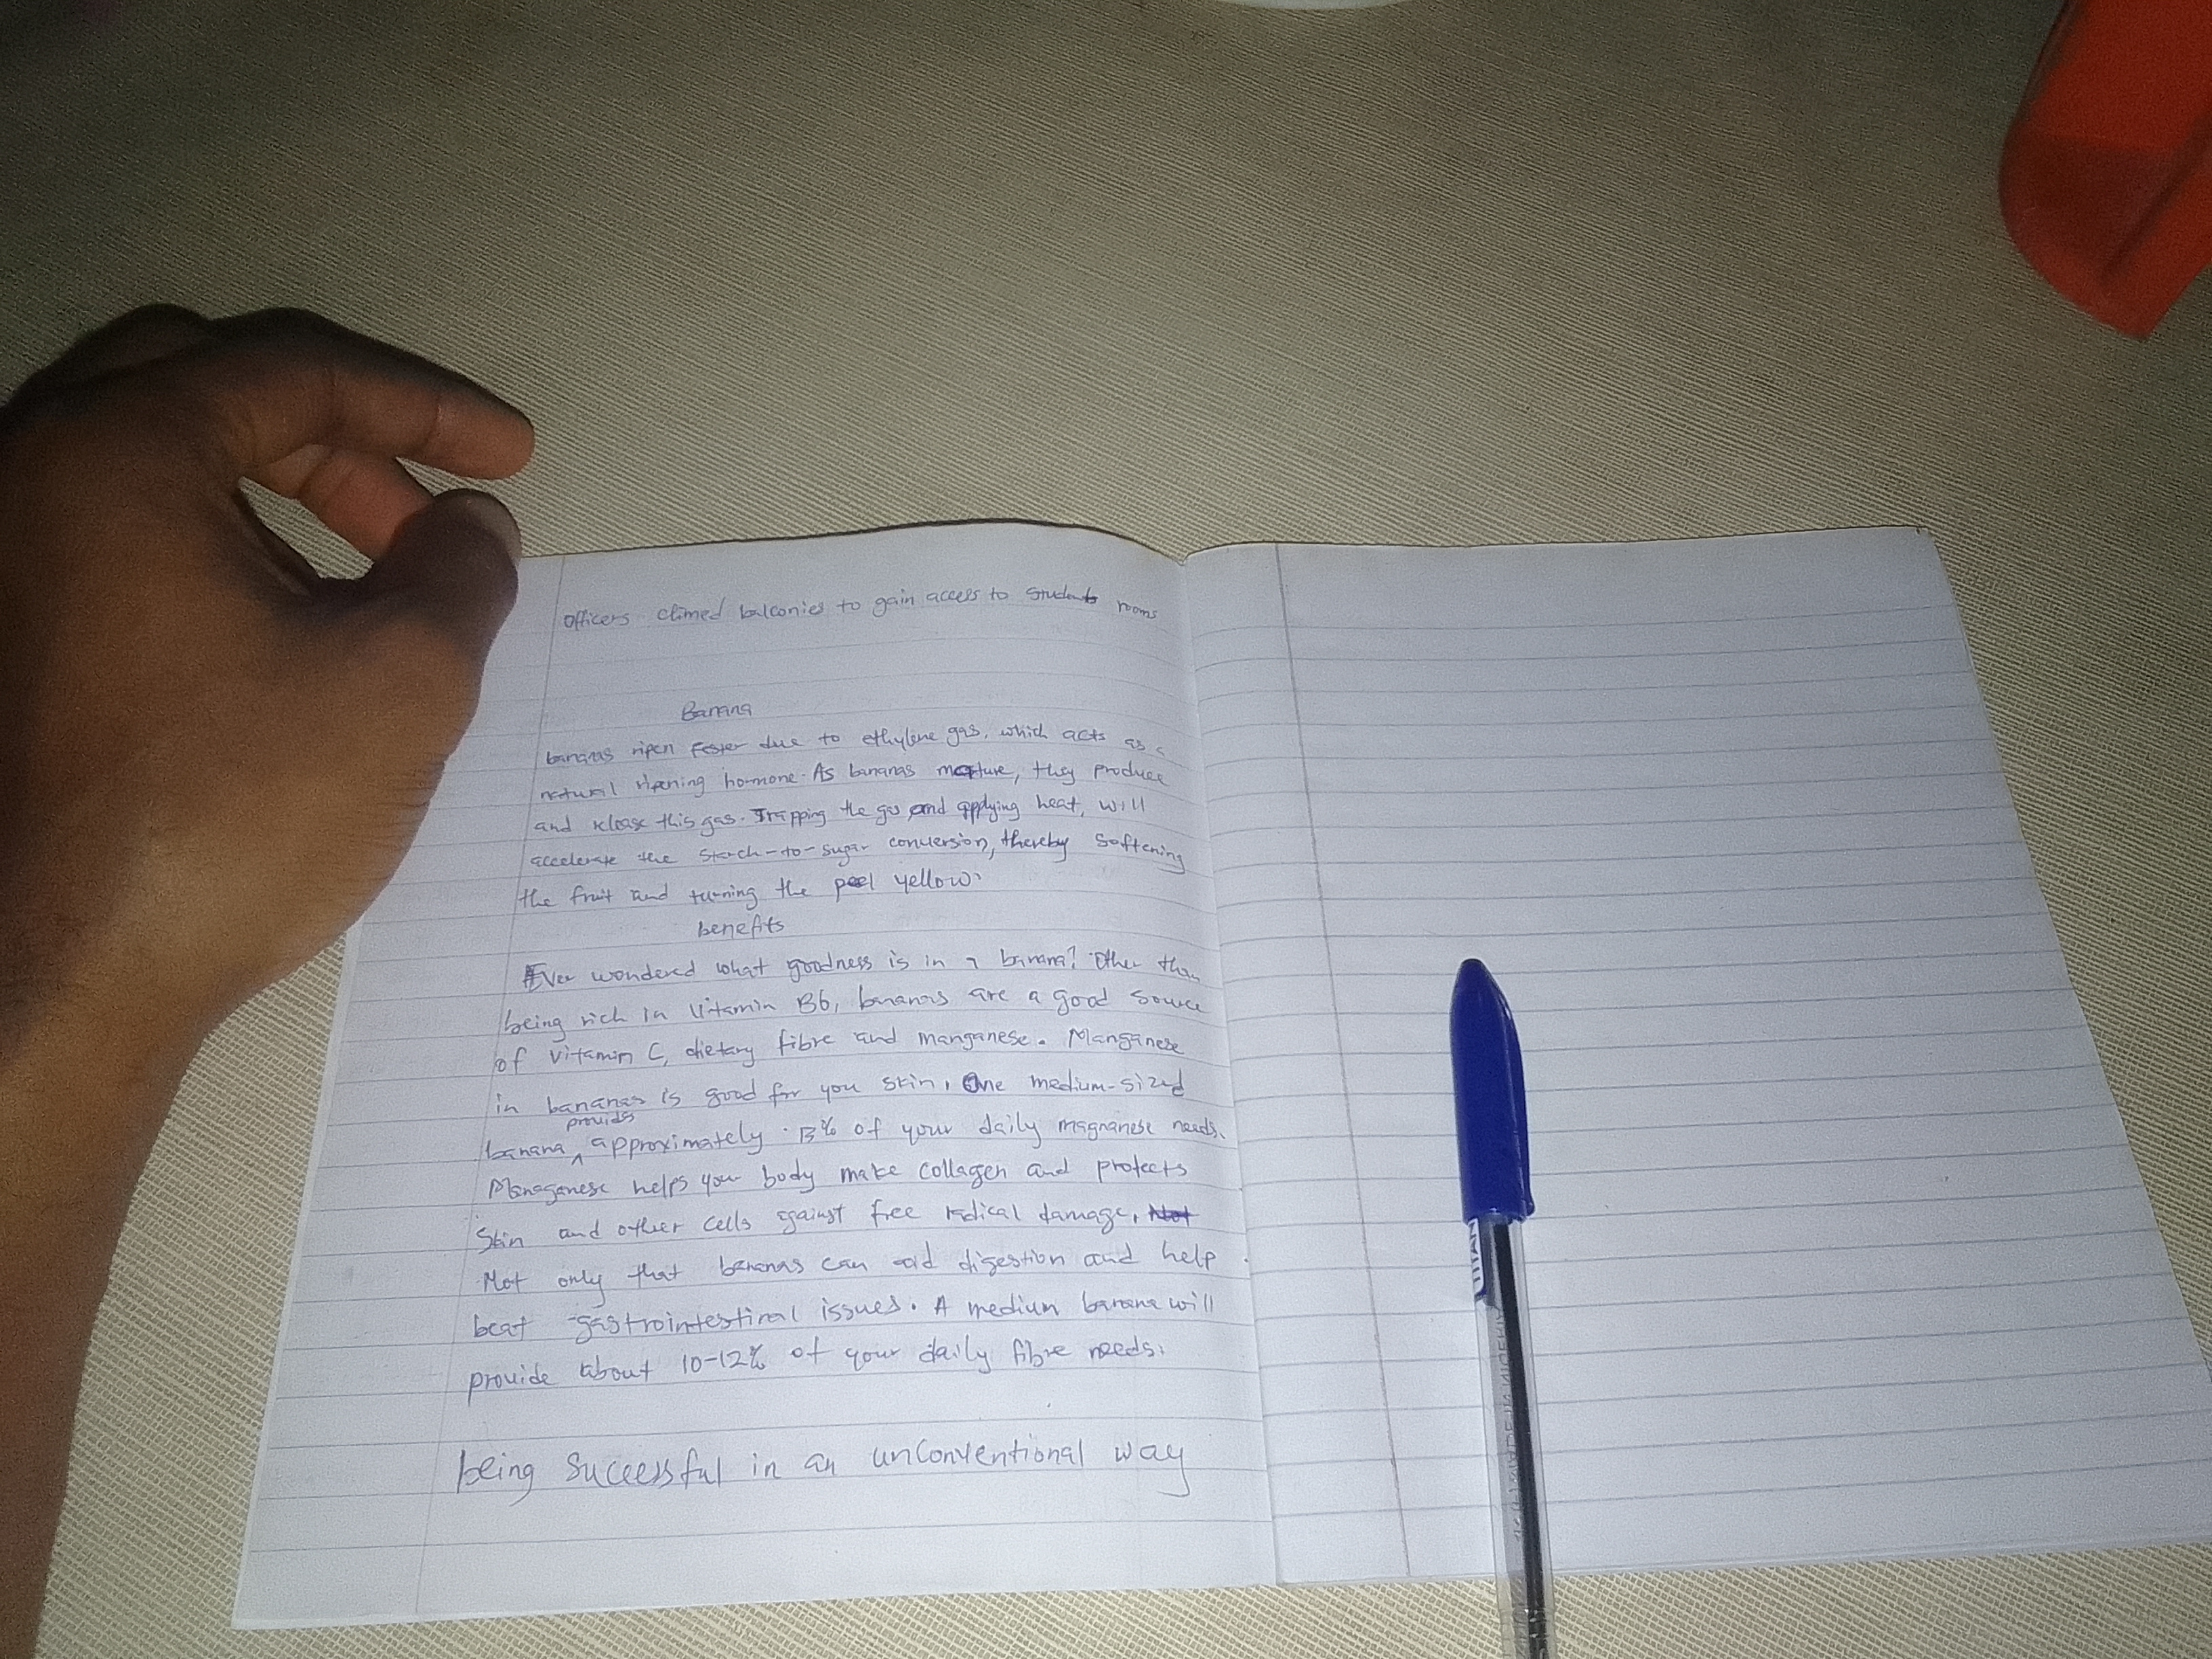 Officers climed balconies to gain access to Students rooms
Banana
bananas ripen faster due to ethylene gas, which acts as a
natural ripening hormone. As bananas mature, they produce
and release this gas. Trapping the gas and applying heat, will
accelerate the Starch-to-sugar conversion, thereby softening
the fruit and turning the peel yellow.
benefits
Ever wondered what goodness is in a banana? Other than
being rich in Vitamin B6, bananas are a good source
of Vitamin C, dietary fibre and manganese. Manganese
in bananas is good for you skin. One medium-sized
provids
banana approximately 13% of your daily magnanese needs.
Managanese helps your body make collagen and protects
Skin and other cells against free radical damage. Not
Not only that bananas can aid digestion and help
beat gastrointestinal issues. A medium banana will
provide about 10-12% of your daily fibre needs.
being Successful in an unconventional way
TITAN